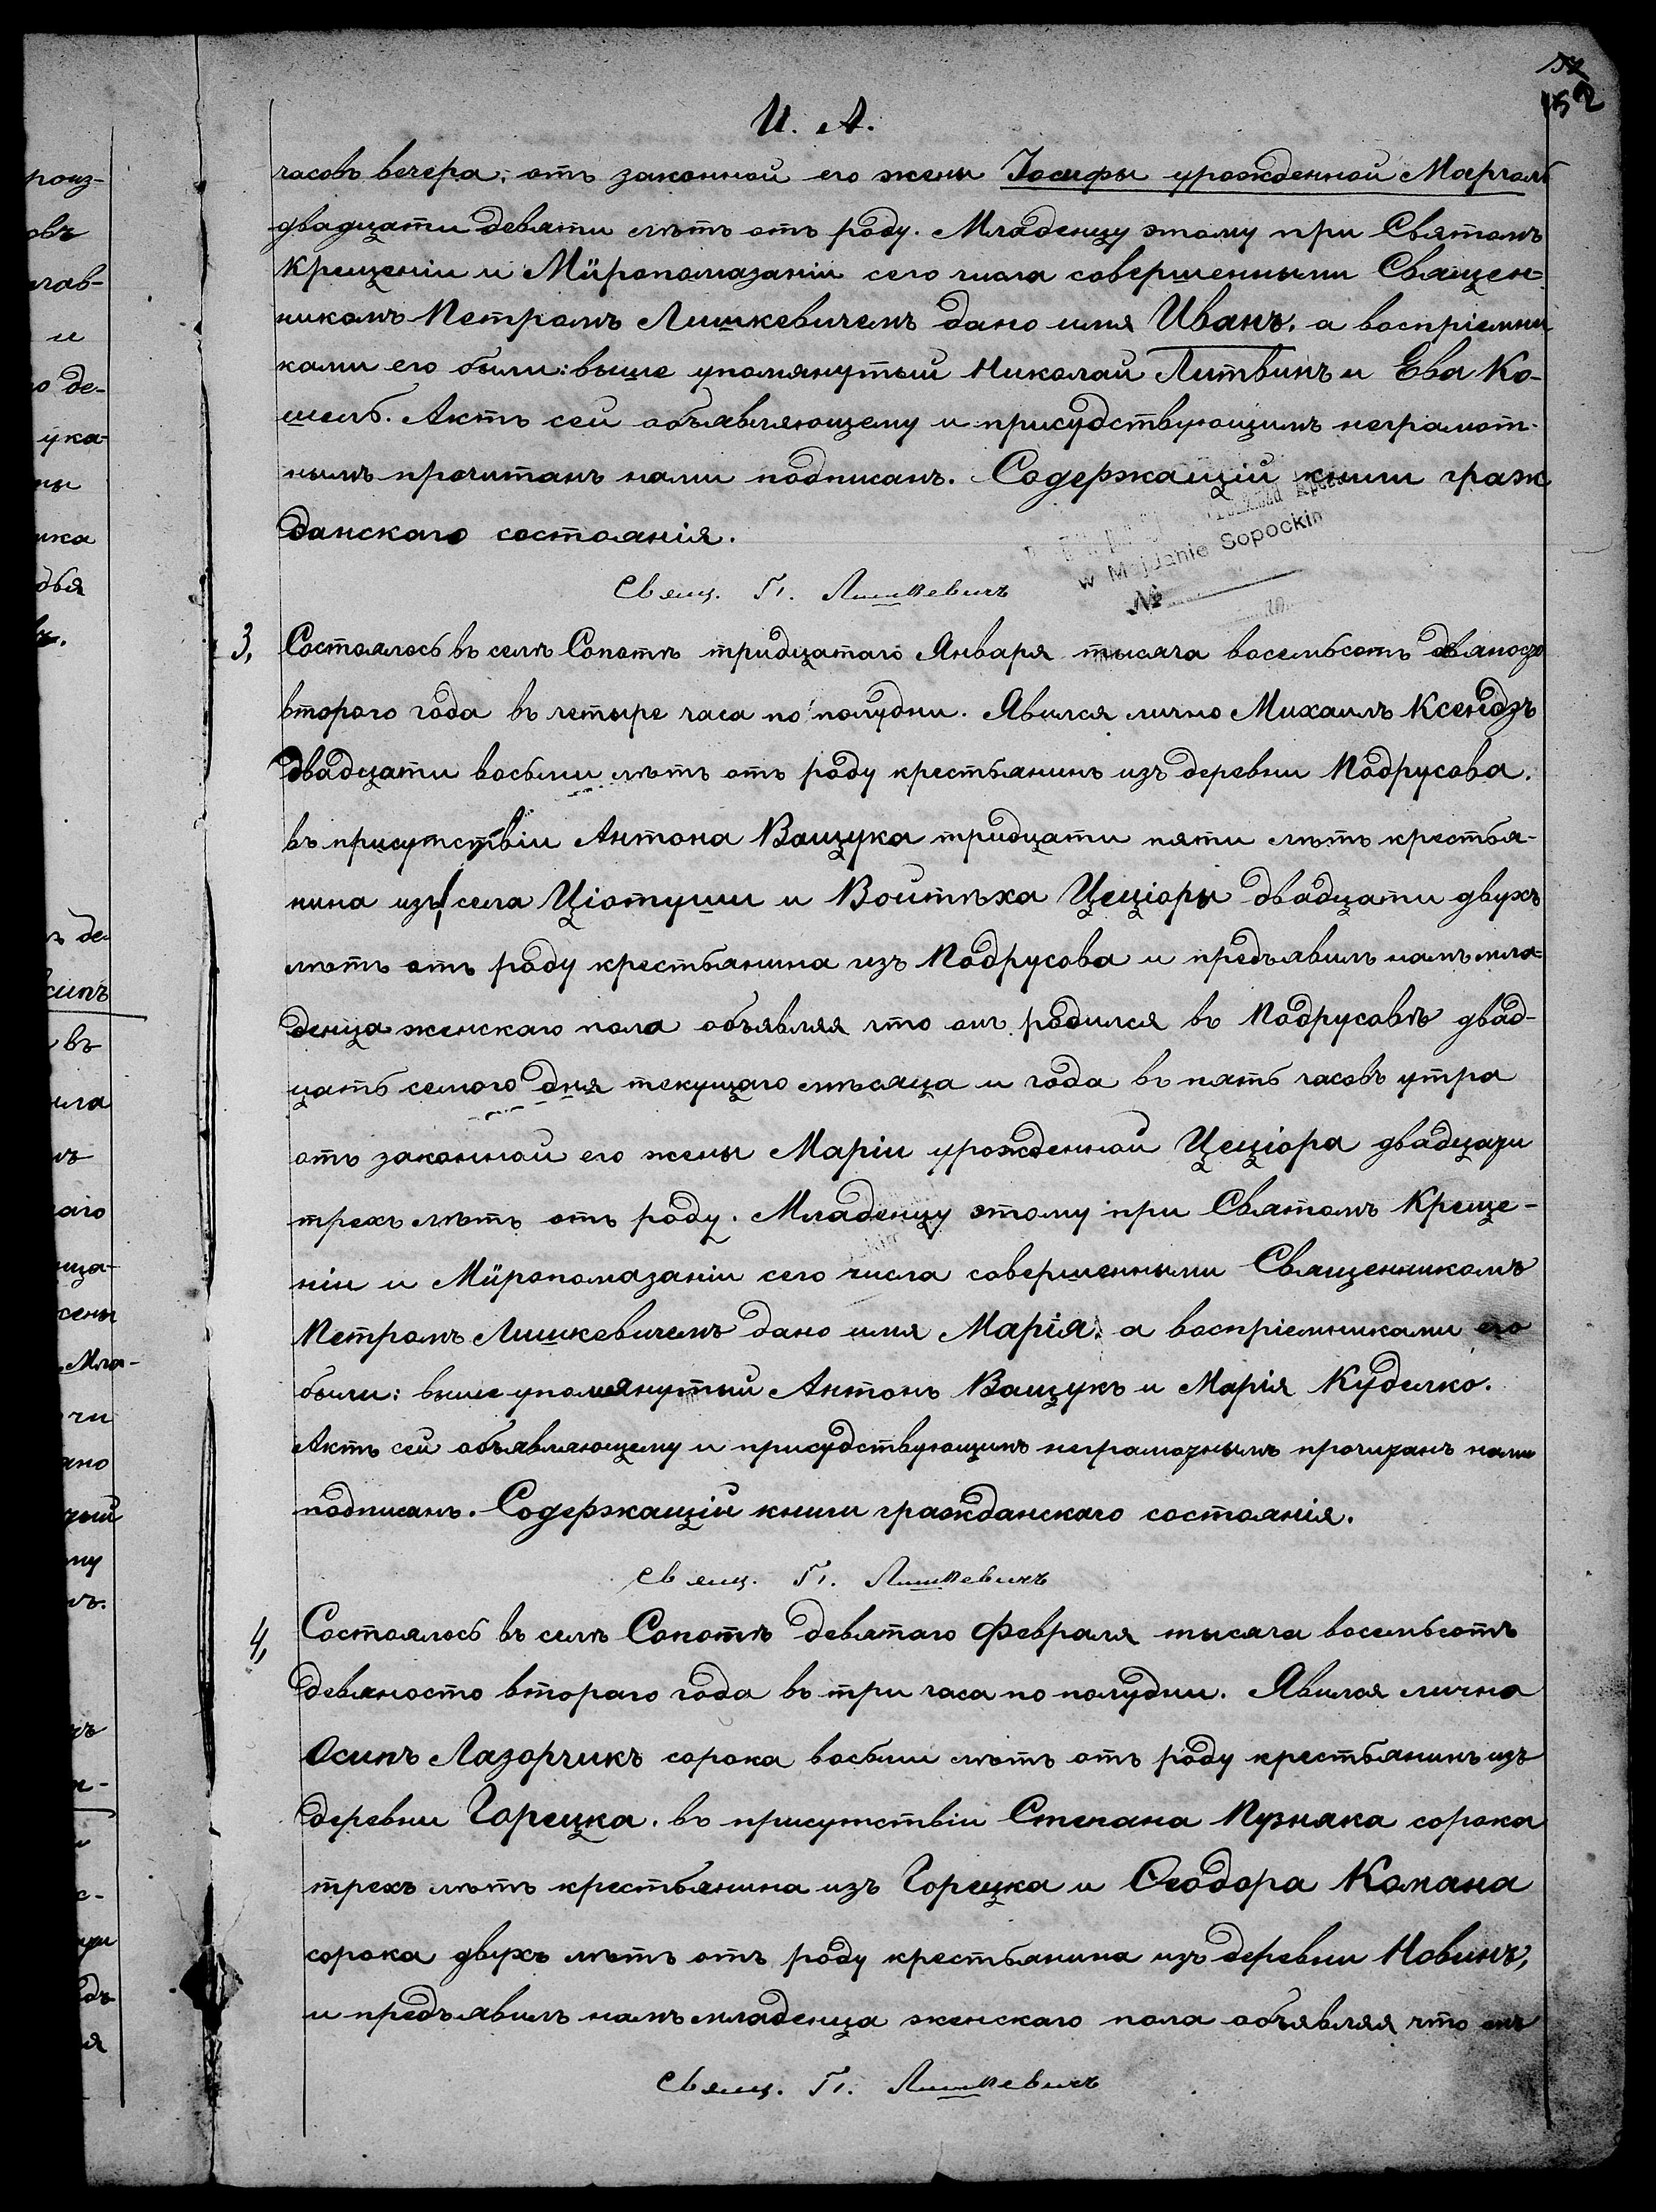 152
И. А.
часовъ вечера, отъ законной его жены Іосифы урожденной Марголь
двадцати девяти лѣтъ отъ роду. Младенцу этому при Святомъ
Крещеніи и Мѵропомазаніи сего числа совершенными Священ-
никомъ Петромъ Лишкевичемъ дано имя Иванъ, а воспріемни
ками его были: выше упомянутый Николай Литвинъ и Ева Ко-
шель. Актъ сей объявляющему и присудствующимъ неграмот-
нымъ прочитанъ нами подписанъ. Содержащій книги граж
данскаго состоянія.
w Majdanie Sopockim
№
Свящ. П. Лишкевичъ
3, Состоялось въ селѣ Сопотѣ тридцатаго Января тысяча восемьсотъ девяносто
втораго года въ четыре часа по полудни. Явился лично Михаилъ Ксендзъ
двадцати восьми лѣтъ отъ роду крестьянинъ изъ деревни Подрусова,
въ присутствіи Антона Ващука тридцати пяти лѣтъ крестья-
нина изъ села Ціотуши и Войтѣха Цеціоры двадцати двухъ
лѣтъ отъ роду крестьянина изъ Подрусова и предъявилъ намъ мла-
денца женскаго пола объявляя что онъ родился въ Подрусовѣ двад-
цать семого дня текущаго мѣсяца и года въ пять часовъ утра
отъ законной его жены Маріи урожденной Цеціора двадцати
трехъ лѣтъ отъ роду. Младенцу этому при Святомъ Креще-
ніи и Мѵропомазаніи сего числа совершенными Священникомъ
Петромъ Лишкевичемъ дано имя Марія, а воспріемниками его
были: выше упомянутый Антонъ Ващукъ и Марія Куделко.
Актъ сей объявляющему и присудствующимъ неграмотнымъ прочитанъ нами
подписанъ. Содержащій книги гражданскаго состоянія.
Свящ. П. Лишкевичъ
4, Состоялось въ селѣ Сопотѣ девятаго Февраля тысяча восемьсотъ
девяносто втораго года въ три часа по полудни. Явился лично
Осипъ Лазорчикъ сорока восьми лѣтъ отъ роду крестьянинъ изъ
деревни Горецка, въ присутствіи Степана Пузняка сорока
трехъ лѣтъ крестьянина изъ Горецка и Ѳеодора Комана
сорока двухъ лѣтъ отъ роду крестьянина изъ деревни Новинъ,
и предъявилъ намъ младенца женскаго пола объявляя что онъ
Свящ. П. Лишкевичъ